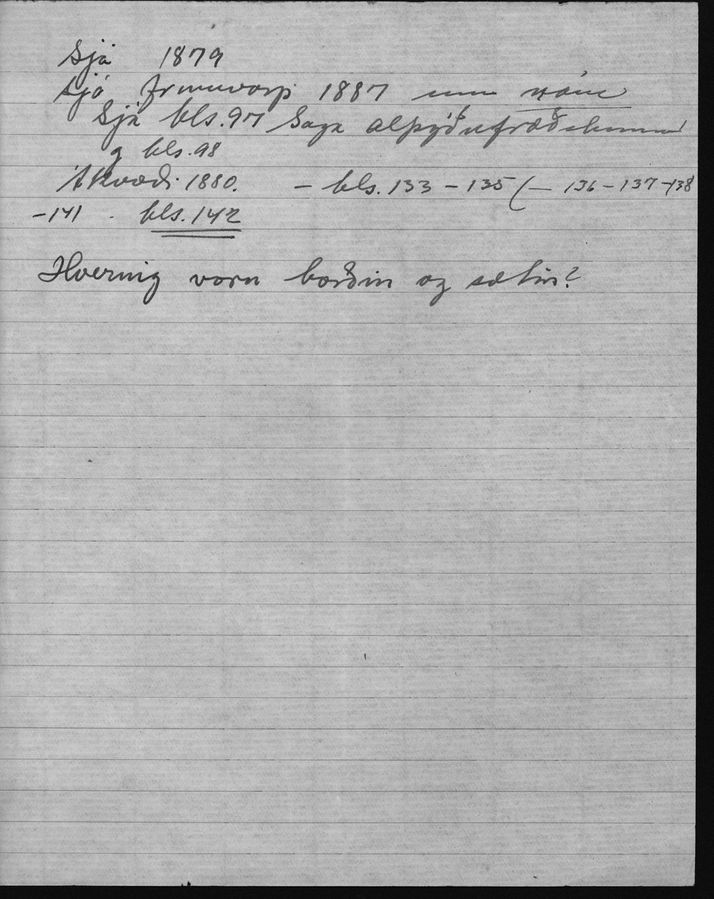 Sjá 1879
sjá frumvarp 1887 um nám
Sjá bls. 97 Saga alþýðufræðslunnar
og bls. 98
Ákvæði 1880. - bls. 133 - 135 ( - 136 - 137 - 138
- 141 . bls. 142
Hvernig voru borðin og sætin?